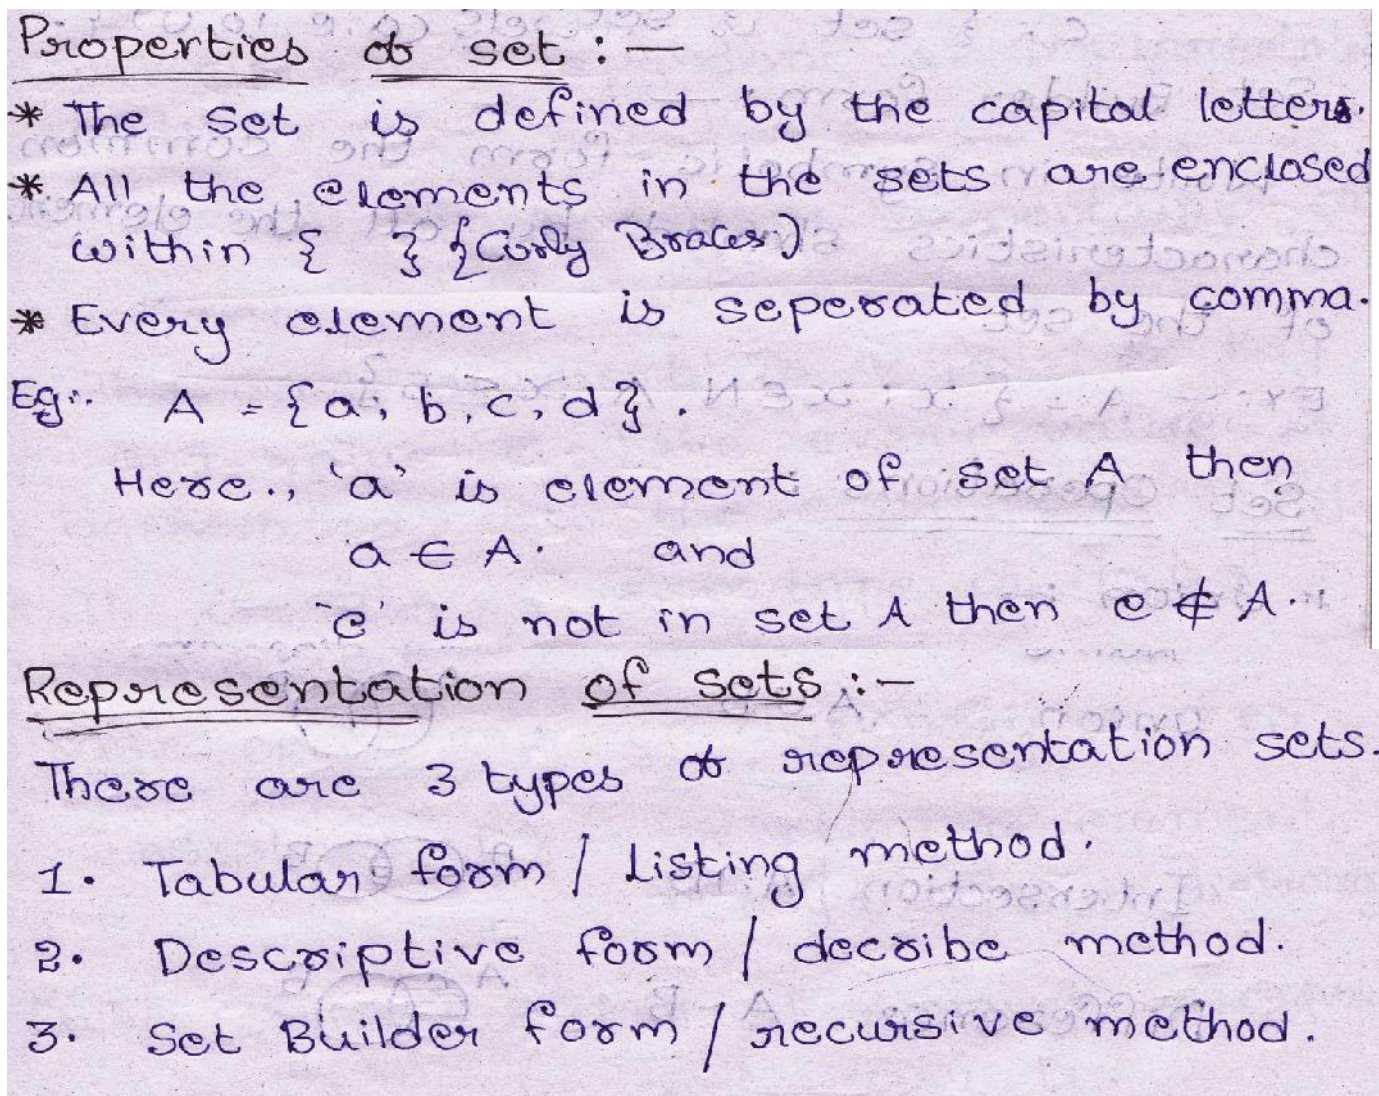 Properties of set : —
* The set is defined by the capital letters.
* All the elements in the sets are enclosed
within { } {Curly Braces)
* Every element is seperated by comma.
Eg:. A = {a, b, c, d} .
Here., 'a' is element of set A then
a ∈ A. and
'e' is not in set A then e ∉ A.
Representation of sets :-
There are 3 types of representation sets.
1. Tabular form / Listing method.
2. Descriptive form / decribe method.
3. Set Builder form / recursive method.